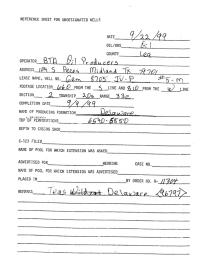 REFERENCE SHEET FOR UNDESIGNATED WELLS
DATE 9/22/99
OIL/GAS Oil
COUNTY Lea
OPERATOR BTA Oil Producers
ADDRESS 104 S Pecos Midland TX 79701
LEASE NAME, WELL NO. Gem 8705 JV-P #5-M
FOOTAGE LOCATION 660 FROM THE S LINE AND 810 FROM THE W LINE
SECTION 2 TOWNSHIP 20s RANGE 33e
COMPLETION DATE 9/9/99
NAME OF PRODUCING FORMATION Delaware
TOP OF PERFORATIONS
DEPTH TO CASING SHOE
C-123 FILED
NAME OF POOL FOR WHICH EXTENSION WAS ASKED
ADVERTISED FOR HEARING CASE NO.
NAME OF POOL FOR WHICH EXTENSION WAS ADVERTISED
PLACED IN BY ORDER NO. R-11304
REMARKS Teas Delaware